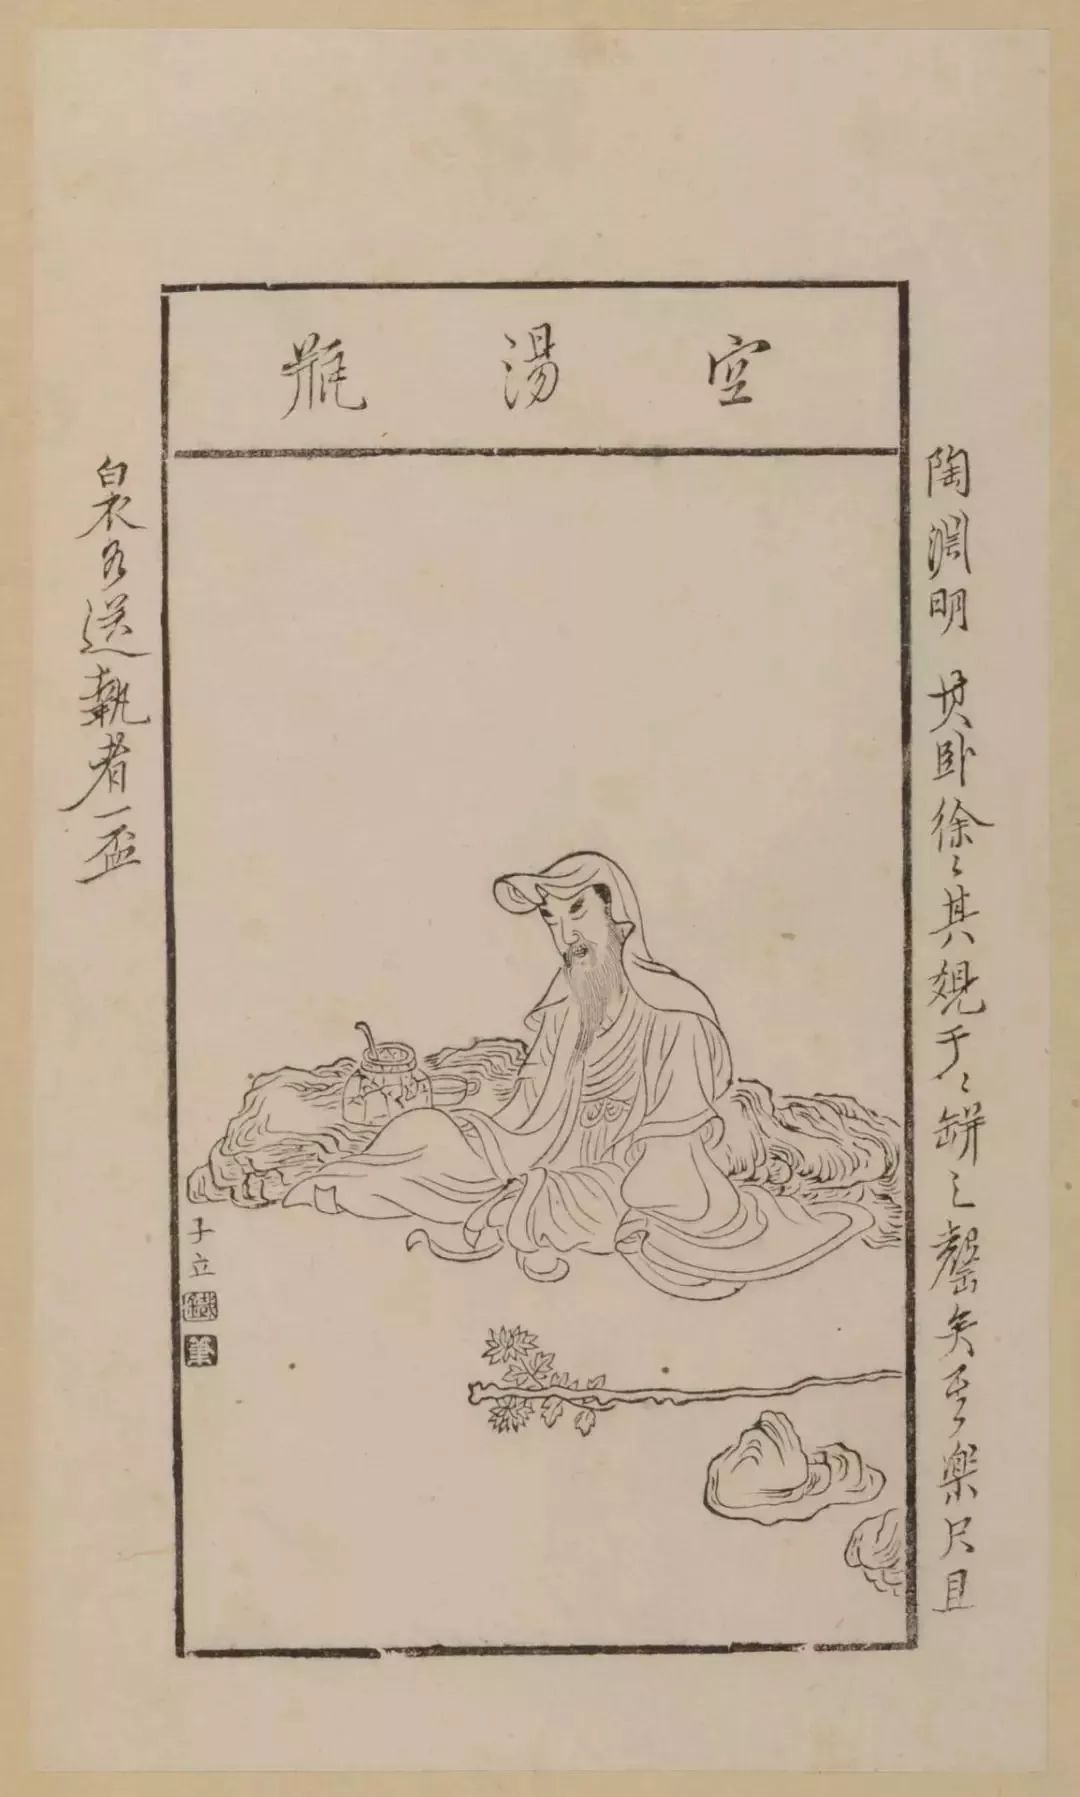 空湯瓶
陶淵明 其卧徐〻其覺于〻缾之罄矣樂只且
白衣送執者一盃
子立
鐵
筆